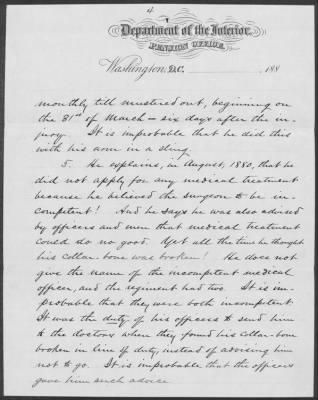 4
Department of the Interior,
PENSION OFFICE,
Washington, D.C. 188
monthly till mustered out, beginning on
the 31st of March – six days after the in-
jury. It is improbable that he did this
with his arm in a sling.
5. He explains, in August, 1880, that he
did not apply for any medical treatment
because he believed the surgeon to be in-
competent! And he says he was also advised
by officers and men that medical treatment
could do no good. Yet all the time he thought
his collar-bone was broken! He does not
give the name of the incompetent medical
officer, and the regiment had two. It is im-
probable that they were both incompetent.
It was the duty of his officers to send him
to the doctors when they found his collar-bone
broken in line of duty, instead of advising him
not to go. It is improbable that the officers
gave him such advice